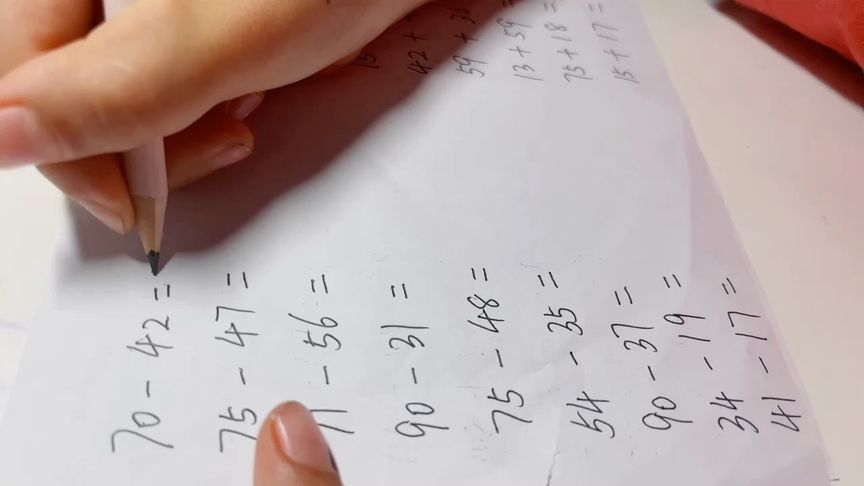 70 - 42 =
75 - 47 =
71 - 56 =
90 - 31 =
75 - 48 =
54 - 35 =
90 - 37 =
34 - 19 =
41 - 17 =
15
42 +
59 + 36
13 + 59 =
75 + 18 =
15 + 17 =